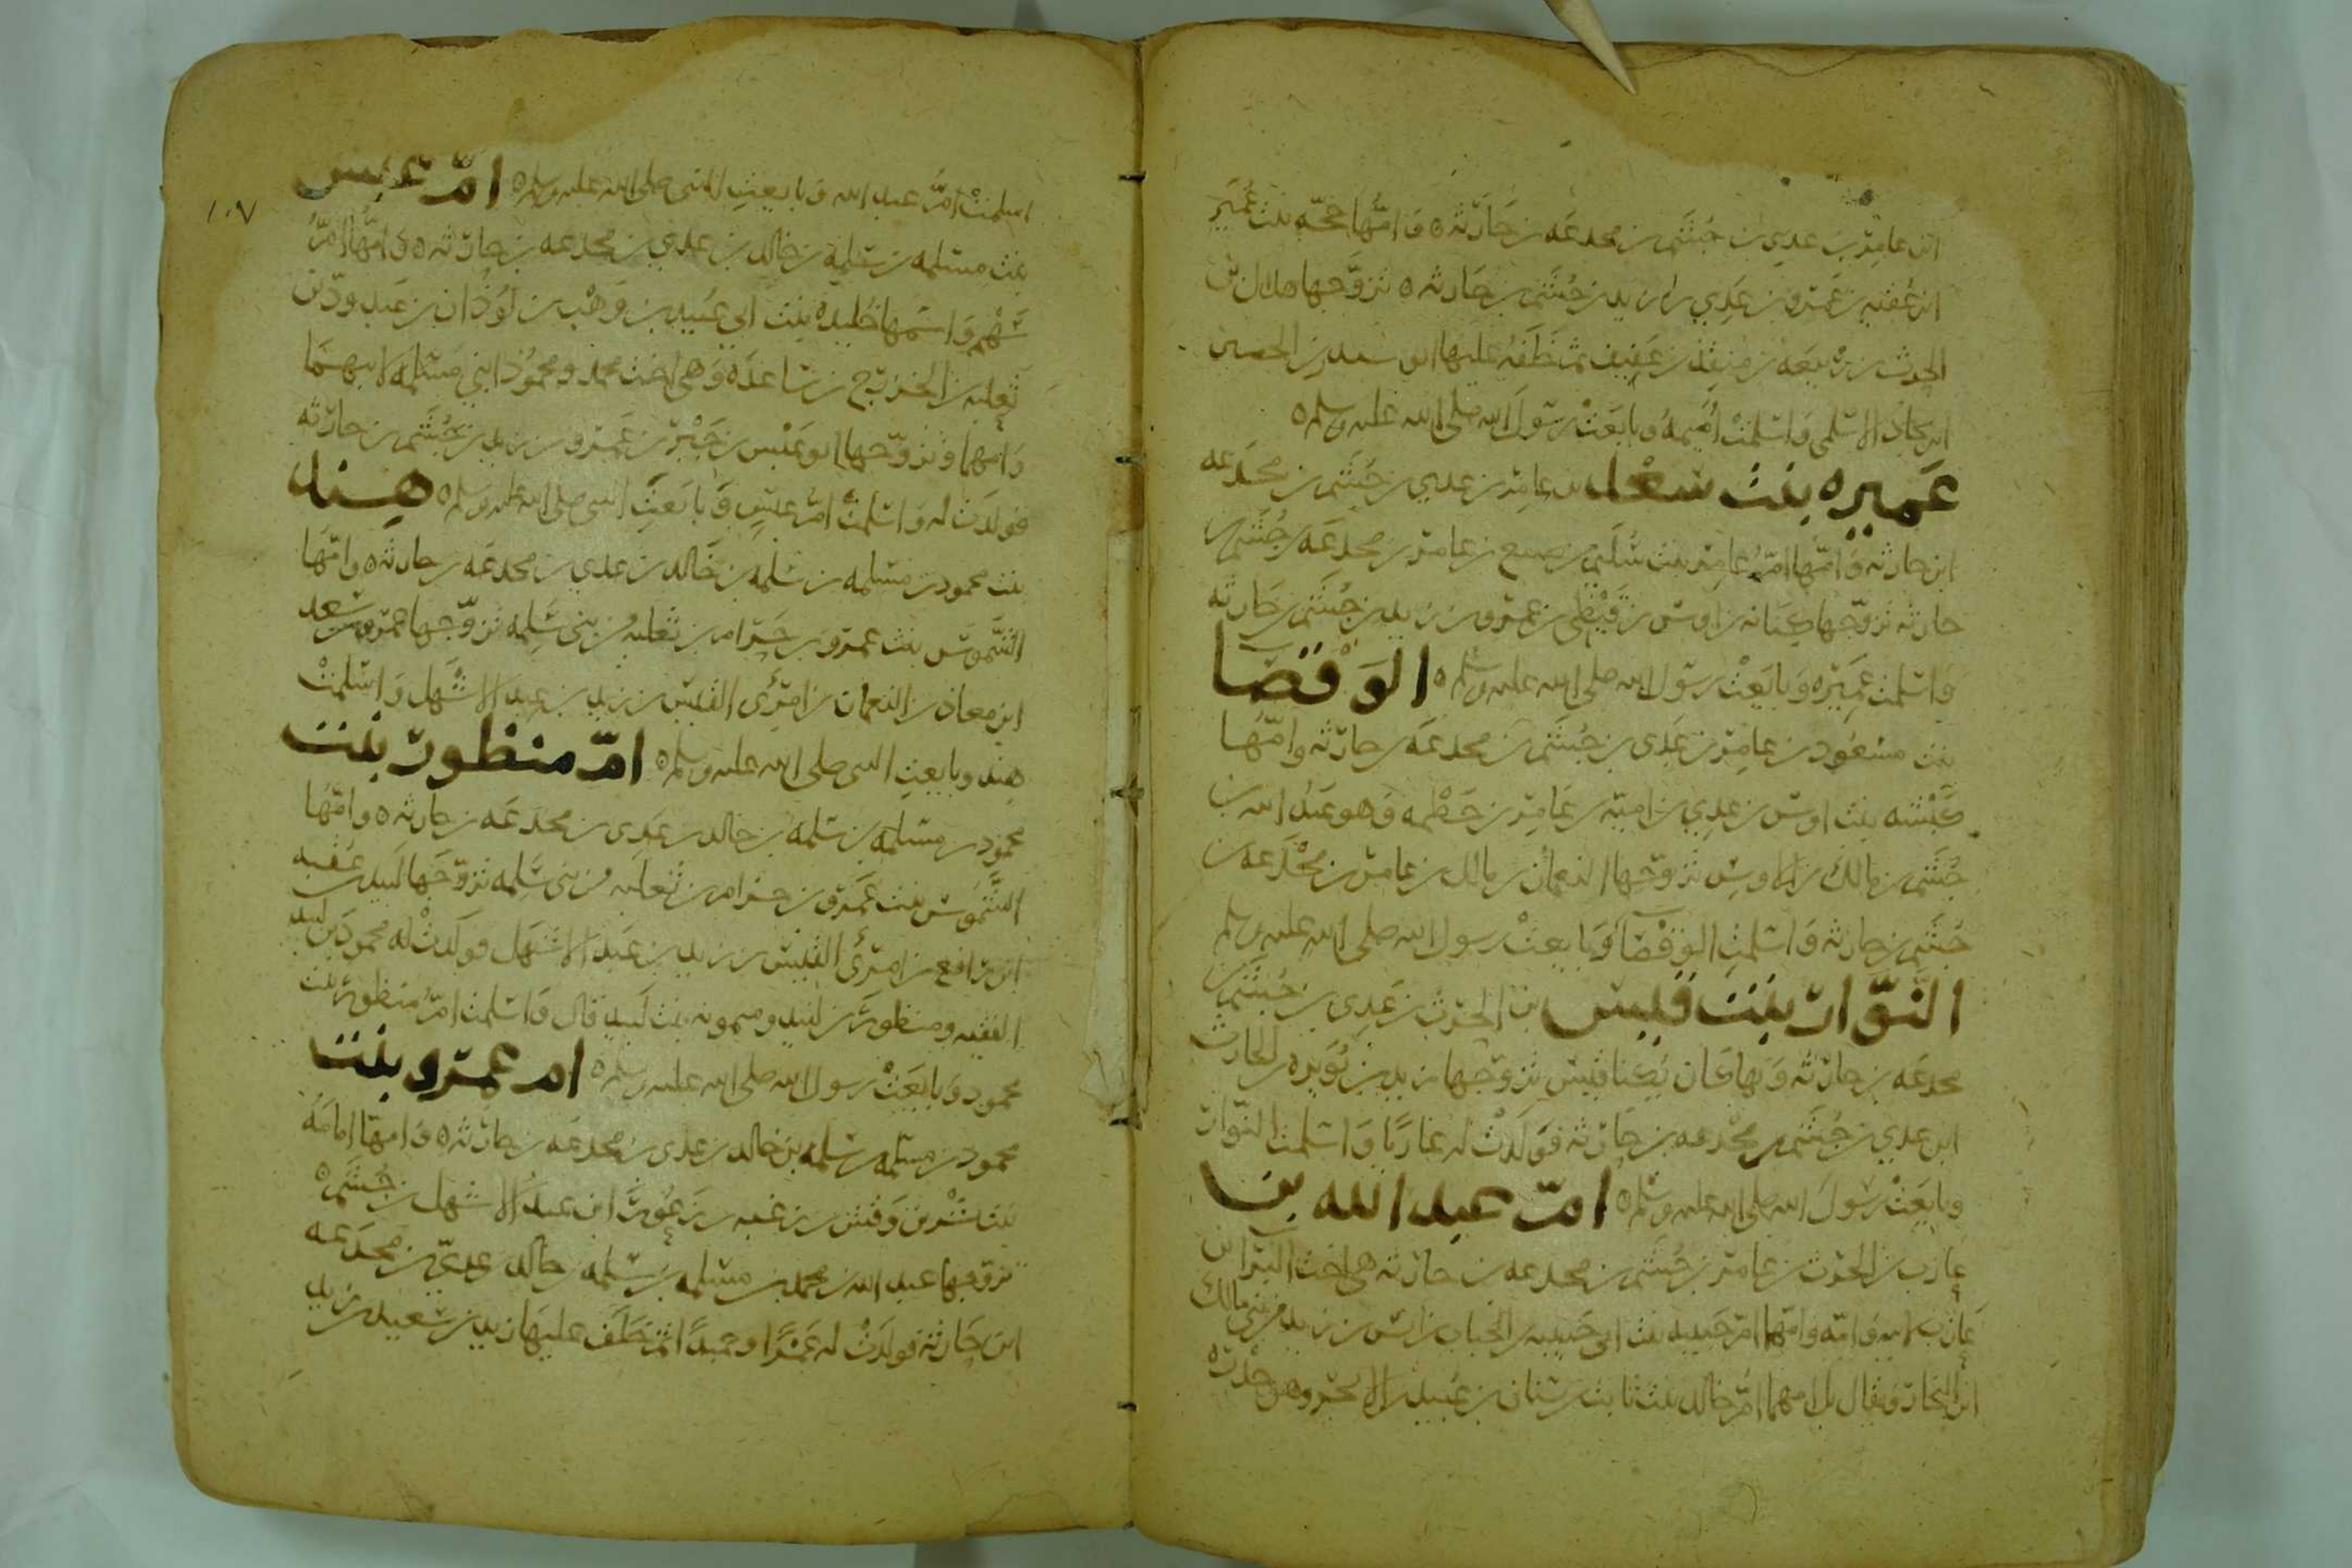 ابن عامر بن عدي بن جشم بن مجدعه بن حارثه ه وامها حجه بنت عمير
ابن عقبه بن عمرو بن عدي بن زيد بن جشم بن حارثه ه تزوجها هلال بن
الحرث بن ربيعه بن منقذ بن عفيف ثم خلف عليها ابو سندر بن الحصين
ابن بجاد الاسلمى واسلمت اميمه وبايعت رسول الله صلى الله عليه وسلم ه
عميره بنت سعد بن عامر بن عدي بن جشم بن مجدعه
ابن حارثه وامها ام عامر بنت سليم بن ضبع بن عامر بن مجدعه بن جشم بن
حارثه تزوجها كنانه بن اوس بن قيظي بن عمرو بن زيد بن جشم بن حارثه
واسلمت عميره وبايعت رسول الله صلى الله عليه وسلم ه الوقصا
بنت مسعود بن عامر بن عدى بن جشم بن مجدعه بن حارثه وامها
كبشه بنت اوس بن عدي بن اميه بن عامر بن خطمه وهو عبد الله بن
جشم بن مالك بن الاوس تزوجها النعمان بن مالك بن عامر بن مجدعه بن
جشم بن حارثه واسلمت الوقصا وبايعت رسول الله صلى الله عليه وسلم
النوار بنت قيس بن الحرث بن عدى بن جشم بن
مجدعه بن حارثه وبها كان يكنا قيس تزوجها زيد بن نويره بن الحارث
ابن عدي بن جشم بن مجدعه بن حارثه فولدت له عاربا واسلمت النوار
وبايعت رسول الله صلى الله عليه وسلم ه ام عبد الله بنت
عازب بن الحرث بن عامر بن جشم بن مجدعه بن حارثه هى اخت البرا بن
عازب لابيه وامه وامها ام حبيبه بنت ابى حبيبه بن الحباب بن انس بن زيد من بنى مالك
ابن النجار ويقال بل امهما ام خالد بنت ثابت بن سنان بن عبيد بن الابجر وهو خدره
١٠٧
اسلمت ام عبد الله وبايعت النبى صلى الله عليه وسلم ه ام عبس
بنت مسلمه بن سلمه بن خالد بن عدي بن مجدعه بن حارثه ه وامها ام
سهم واسمها خليده بنت ابي عبيد بن وهب بن لوذان بن عبد ود بن
ثعلبه بن الخزرج بن ساعده وهى اخت محمد ومحمود ابني مسلمه لابيهما
وامهما وتزوجها ابو عبس بن جبر بن عمرو بن زيد بن جشم بن حارثه
فولدت له واسلمت ام عبس وبايعت النبى صلى الله عليه وسلم ه هند
بنت محمود بن مسلمه بن سلمه بن خالد بن عدي بن مجدعه بن حارثه ه وامها
الشموس بنت عمرو بن حرام بن ثعلبه من بنى سلمه تزوجها عمرو بن سعد
ابن معاذ بن النعمان بن امرى القيس بن زيد بن عبد الاشهل واسلمت
هند وبايعت النبى صلى الله عليه وسلم ه ام منظور بنت
محمود بن مسلمه بن سلمه بن خالد بن عدى بن مجدعه بن حارثه ه وامها
الشموس بنت عمرو بن حرام بن ثعلبه من بنى سلمه تزوجها لبيد بن عقبه
ابن رافع بن امرئ القيس بن زيد بن عبد الاشهل فولدت له محمود بن لبيد
الفقيه ومنظور بن لبيد وميمونه بنت لبيد قال واسلمت ام منظور بنت
محمود وبايعت رسول الله صلى الله عليه وسلم ه ام عمرو بنت
محمود بن مسلمه بن سلمه بن خالد بن عدى بن مجدعه بن حارثه ه وامها امامه
بنت بشر بن وقش بن زغبه بن زعورا بن عبد الاشهل بن جشم ه
تزوجها عبد الله بن محمد بن مسلمه بن سلمه بن خالد بن عدي بن مجدعه
ابن حارثه فولدت له عمرا وحميدا ثم خلف عليها زيد بن سعيد بن زيد